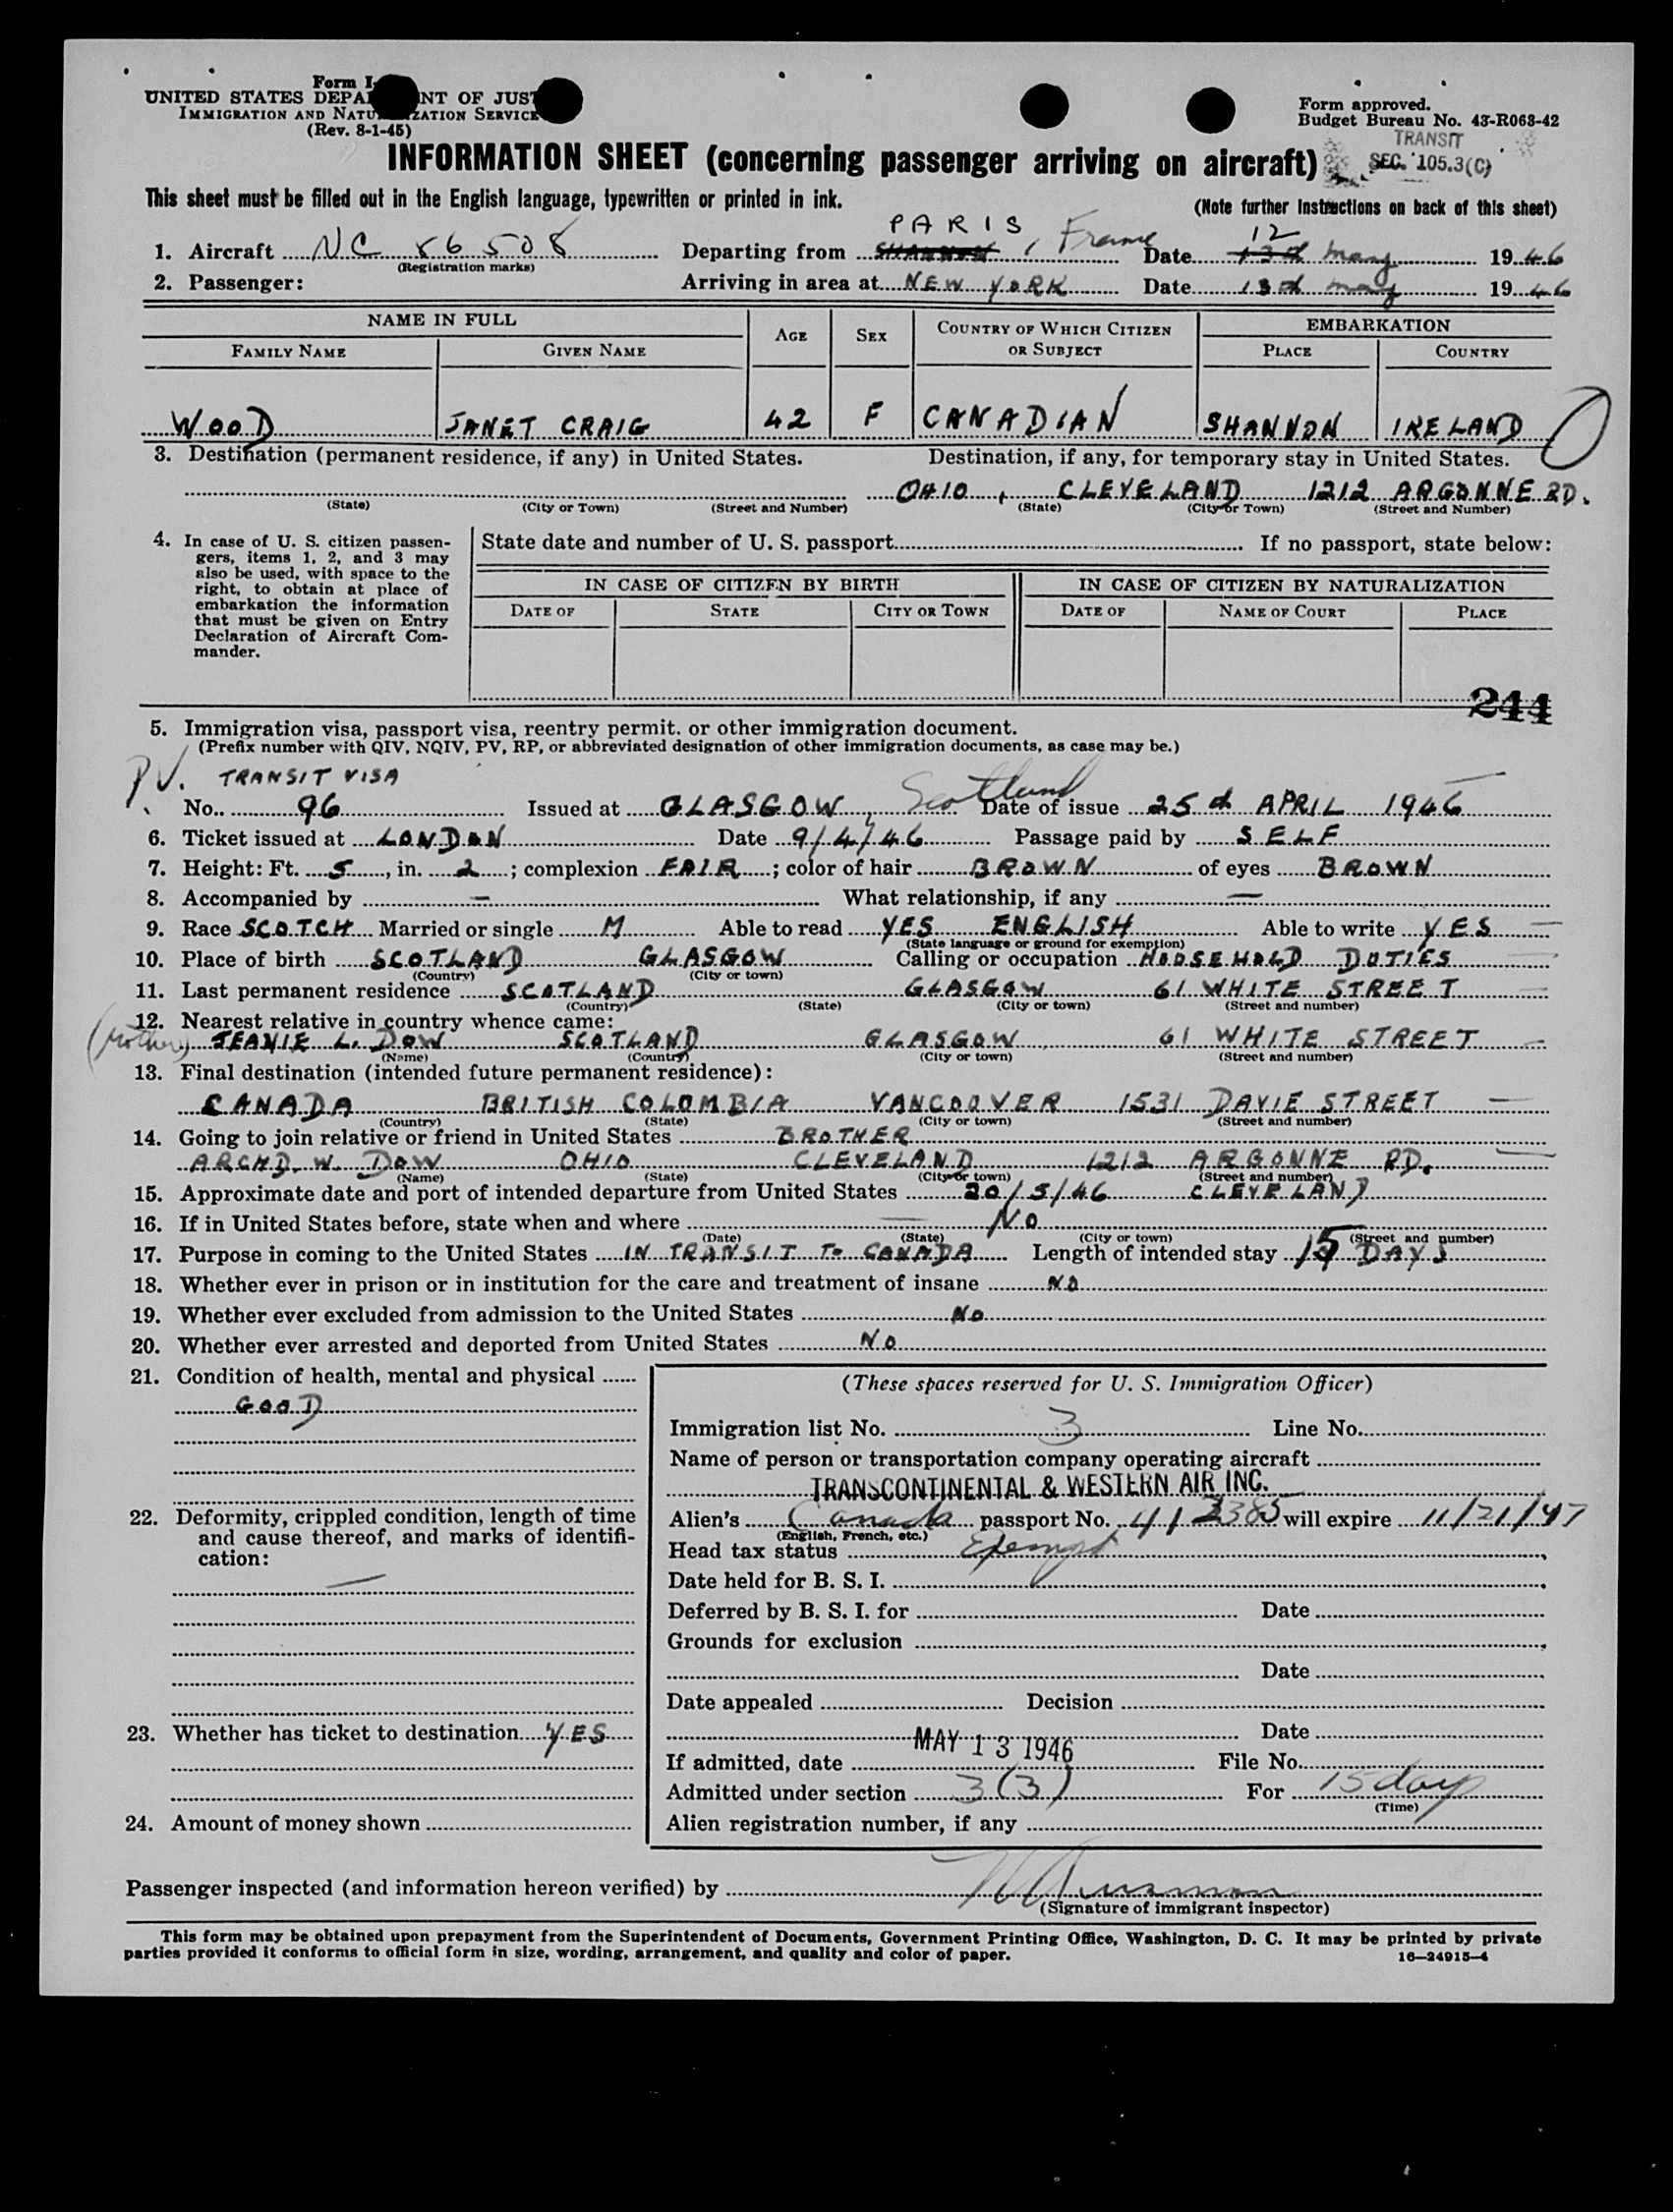 Form I-
UNITED STATES DEPA NT OF JUST
IMMIGRATION AND NATU ZATION SERVICE
(Rev. 8-1-45)
Form approved.
Budget Bureau No. 43-R063-42
TRANSIT
SEC. 105.3(C)
INFORMATION SHEET (concerning passenger arriving on aircraft)
This sheet must be filled out in the English language, typewritten or printed in ink.
(Note further instructions on back of this sheet)
1. Aircraft NC 86508 Departing from SHANNON PARIS, France Date 13th 12 May 1946
(Registration marks)
2. Passenger: Arriving in area at NEW YORK Date 13th May 1946
NAME IN FULL AGE SEX COUNTRY OF WHICH CITIZEN OR SUBJECT EMBARKATION
FAMILY NAME GIVEN NAME PLACE COUNTRY
WOOD JANET CRAIG 42 F CANADIAN SHANNON IRELAND
3. Destination (permanent residence, if any) in United States. Destination, if any, for temporary stay in United States.
OHIO, CLEVELAND 1212 ARGONNE RD.
(State) (City or Town) (Street and Number) (State) (City or Town) (Street and Number)
4. In case of U. S. citizen passengers, items 1, 2, and 3 may also be used, with space to the right, to obtain at place of embarkation the information that must be given on Entry Declaration of Aircraft Commander.
State date and number of U. S. passport If no passport, state below:
IN CASE OF CITIZEN BY BIRTH IN CASE OF CITIZEN BY NATURALIZATION
DATE OF STATE CITY OR TOWN DATE OF NAME OF COURT PLACE
244
5. Immigration visa, passport visa, reentry permit. or other immigration document.
(Prefix number with QIV, NQIV, PV, RP, or abbreviated designation of other immigration documents, as case may be.)
PV. TRANSIT VISA
No. 96 Issued at GLASGOW, Scotland Date of issue 25th APRIL 1946
6. Ticket issued at LONDON Date 9/4/46 Passage paid by SELF
7. Height: Ft. 5, in. 2; complexion FAIR; color of hair BROWN of eyes BROWN
8. Accompanied by — What relationship, if any —
9. Race SCOTCH Married or single M Able to read YES ENGLISH Able to write YES
(State language or ground for exemption)
10. Place of birth SCOTLAND GLASGOW Calling or occupation HOUSEHOLD DUTIES
(Country) (City or town)
11. Last permanent residence SCOTLAND GLASGOW 61 WHITE STREET
(Country) (State) (City or town) (Street and number)
12. Nearest relative in country whence came:
(Mother) JEANIE L. DOW SCOTLAND GLASGOW 61 WHITE STREET
(Name) (Country) (City or town) (Street and number)
13. Final destination (intended future permanent residence):
CANADA BRITISH COLOMBIA VANCOUVER 1531 DAVIE STREET
(Country) (State) (City or town) (Street and number)
14. Going to join relative or friend in United States BROTHER
ARCHD. W. DOW OHIO CLEVELAND 1212 ARGONNE RD.
(Name) (State) (City or town) (Street and number)
15. Approximate date and port of intended departure from United States 20/5/46 CLEVELAND
16. If in United States before, state when and where No
(Date) (State) (City or town) (Street and number)
17. Purpose in coming to the United States IN TRANSIT TO CANADA Length of intended stay 15 DAYS
18. Whether ever in prison or in institution for the care and treatment of insane NO
19. Whether ever excluded from admission to the United States No
20. Whether ever arrested and deported from United States NO
21. Condition of health, mental and physical
GOOD
22. Deformity, crippled condition, length of time and cause thereof, and marks of identification:
—
23. Whether has ticket to destination YES
24. Amount of money shown
(These spaces reserved for U. S. Immigration Officer)
Immigration list No. 3 Line No.
Name of person or transportation company operating aircraft
TRANSCONTINENTAL & WESTERN AIR INC.
Alien's Canada passport No. 4/3385 will expire 11/21/47
(English, French, etc.)
Head tax status Exempt
Date held for B. S. I.
Deferred by B. S. I. for Date
Grounds for exclusion
Date
Date appealed Decision
Date
If admitted, date MAY 13 1946 File No.
Admitted under section 3(3) For 15 days
(Time)
Alien registration number, if any
Passenger inspected (and information hereon verified) by
(Signature of immigrant inspector)
This form may be obtained upon prepayment from the Superintendent of Documents, Government Printing Office, Washington, D. C. It may be printed by private
parties provided it conforms to official form in size, wording, arrangement, and quality and color of paper.
16—24915-4